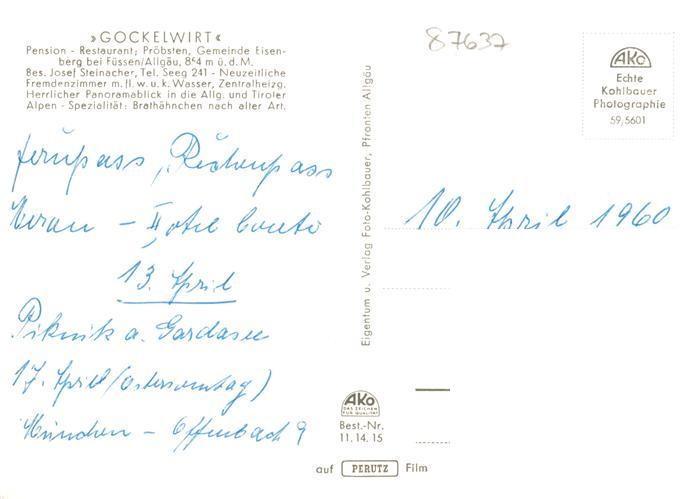 »GOCKELWIRT«
Pension - Restaurant; Pröbsten, Gemeinde Eisen-
berg bei Füssen/Allgäu, 864 m ü. d. M.
Bes. Josef Steinacher, Tel. Seeg 241 - Neuzeitliche
Fremdenzimmer m. fl. w. u. k. Wasser, Zentralheizg.
Herrlicher Panoramablick in die Allg. und Tiroler
Alpen - Spezialität: Brathähnchen nach alter Art.
87637
AKo
Echte
Kohlbauer
Photographie
59,5601
Fernpass, Reschenpass
Meran - Hotel Conti
13. April
Piknik a. Gardasee
17. April (Ostersonntag)
München - Offenbach 9
Eigentum u. Verlag Foto-Kohlbauer, Pfronten Allgäu
10. April 1960
AKo
DAS ZEICHEN
FÜR QUALITÄT
Best.-Nr.
11, 14, 15
auf PERUTZ Film